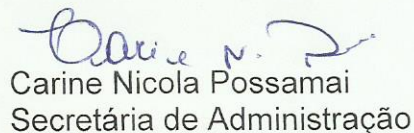 Carine N.
Carine Nicola Possamai
Secretária de Administração